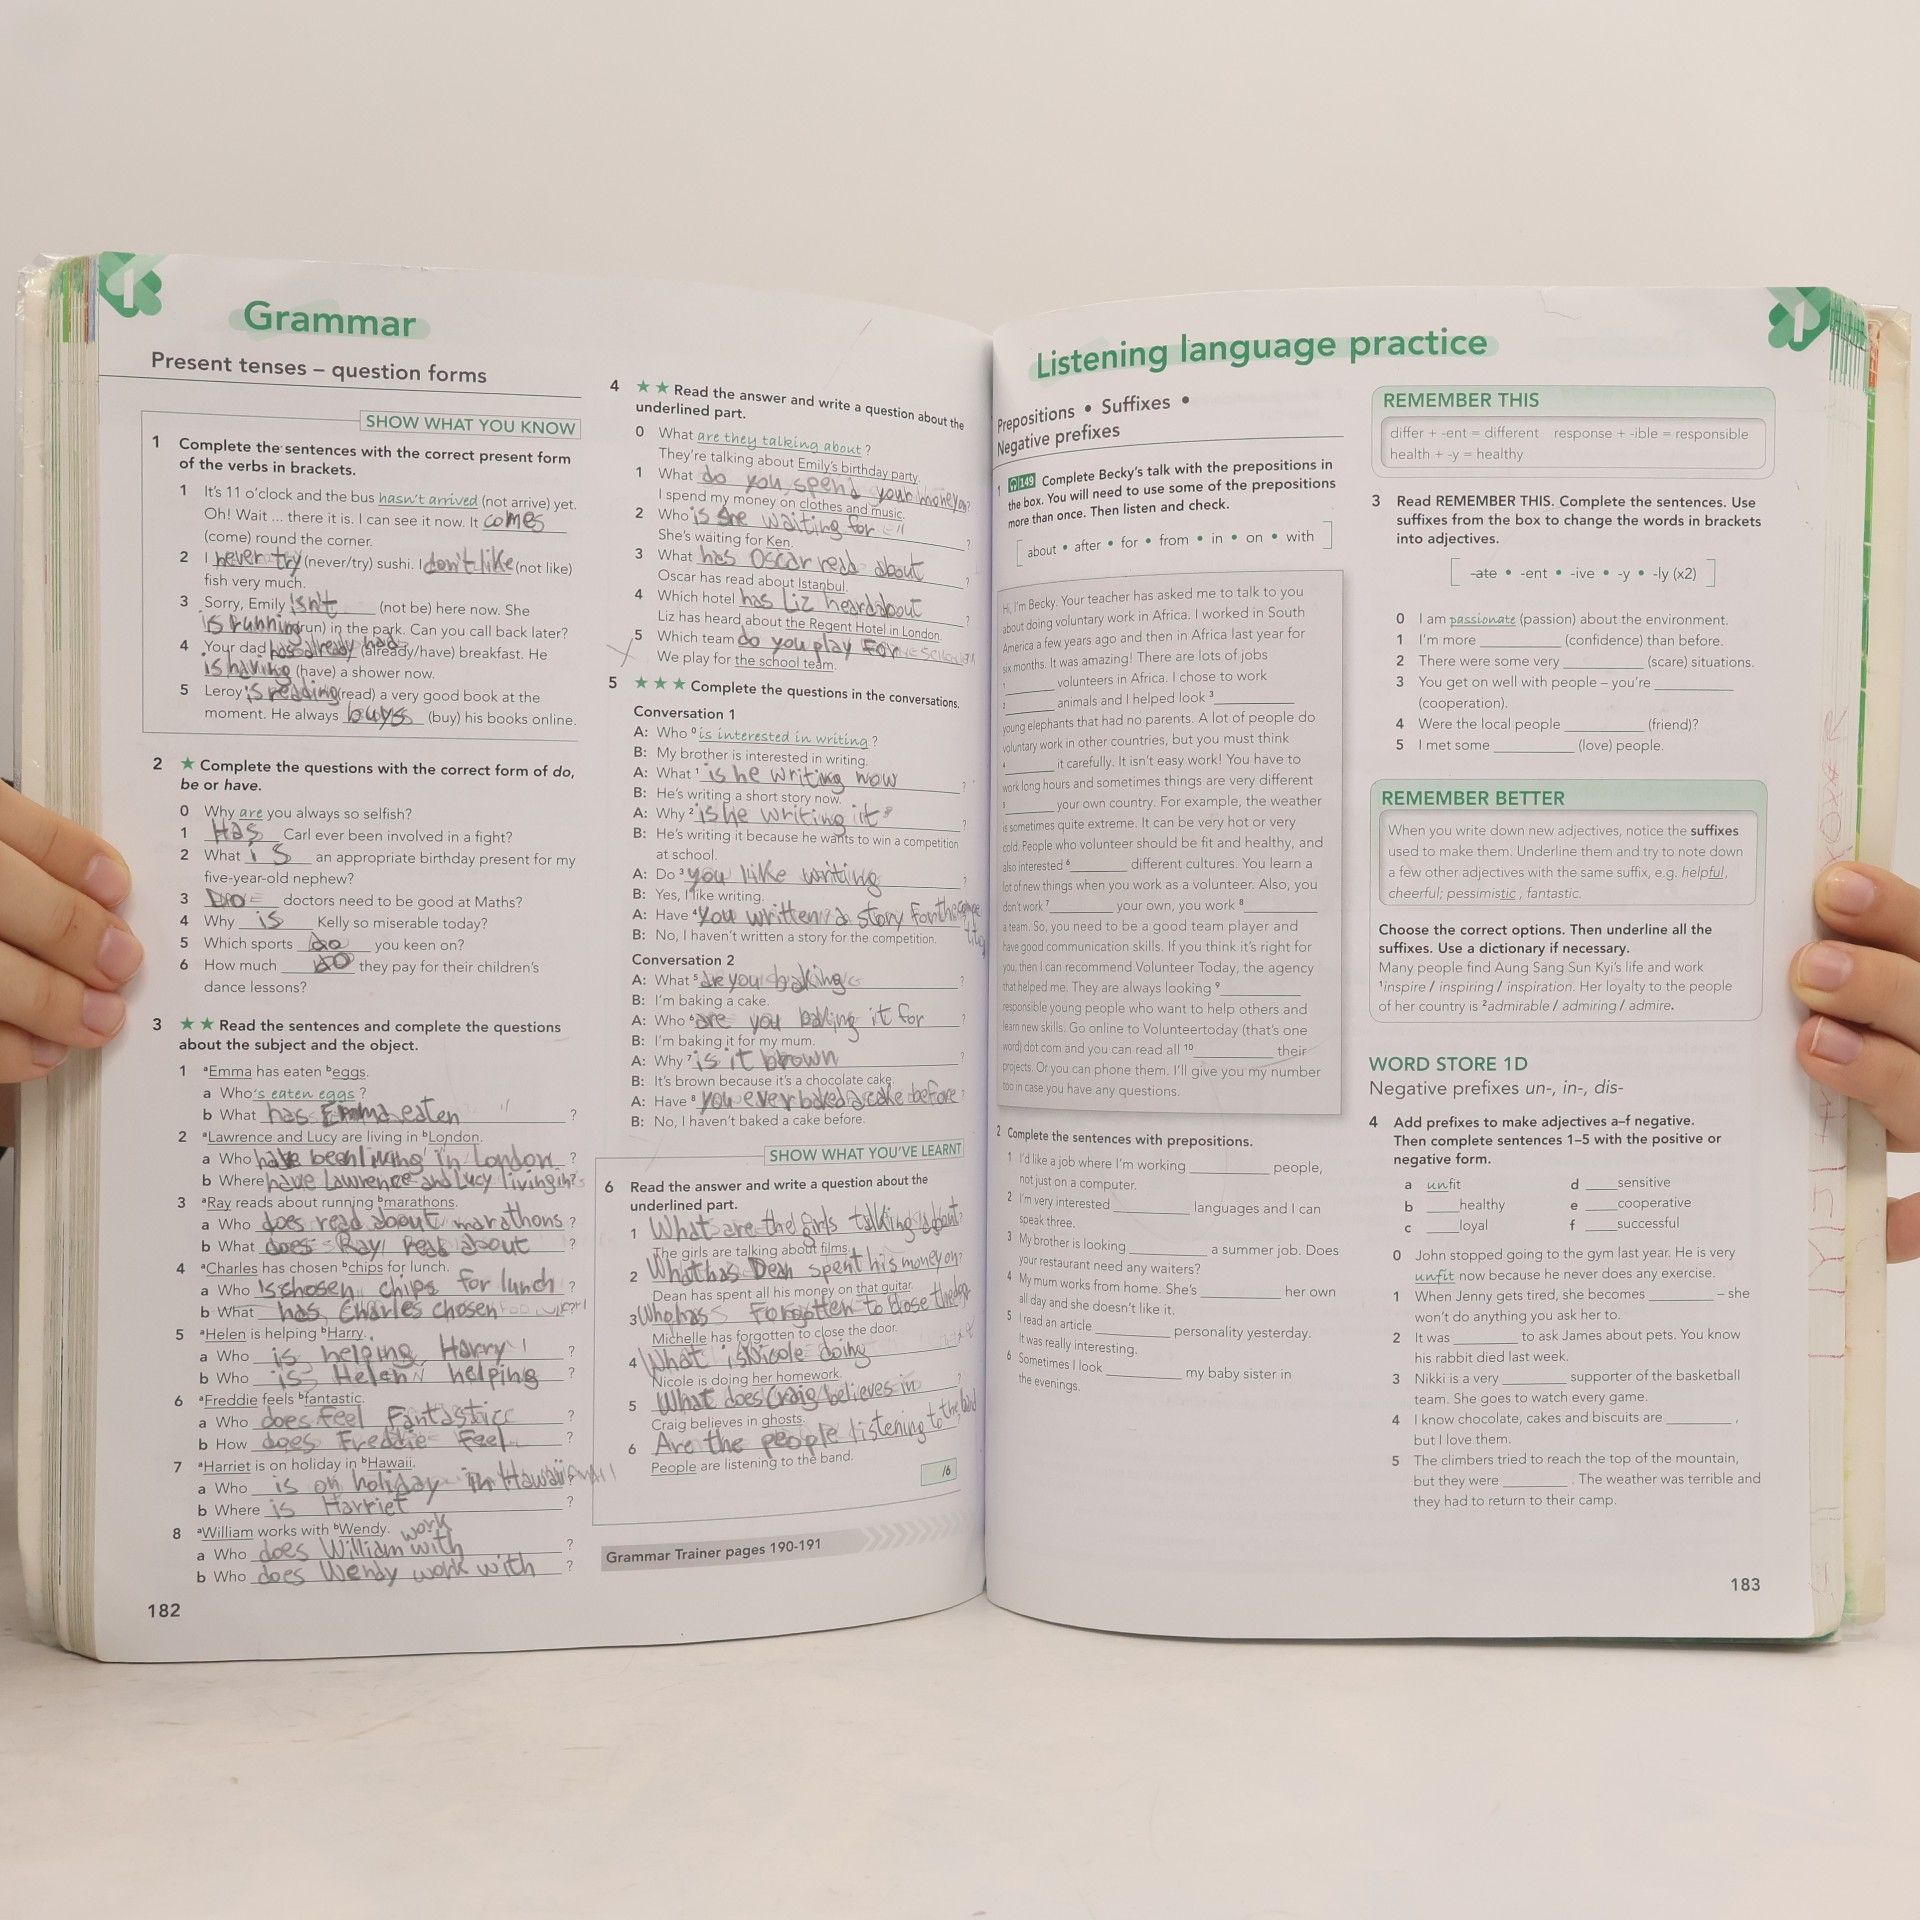 Grammar
Present tenses – question forms
SHOW WHAT YOU KNOW
1 Complete the sentences with the correct present form
of the verbs in brackets.
1 It's 11 o'clock and the bus hasn't arrived (not arrive) yet.
Oh! Wait ... there it is. I can see it now. It comes
(come) round the corner.
2 I never try (never/try) sushi. I don't like (not like)
fish very much.
3 Sorry, Emily isn't (not be) here now. She
is running (run) in the park. Can you call back later?
4 Your dad has already had (already/have) breakfast. He
is having (have) a shower now.
5 Leroy is reading (read) a very good book at the
moment. He always buys (buy) his books online.
2 ★ Complete the questions with the correct form of do,
be or have.
0 Why are you always so selfish?
1 Has Carl ever been involved in a fight?
2 What is an appropriate birthday present for my
five-year-old nephew?
3 doctors need to be good at Maths?
4 Why is Kelly so miserable today?
5 Which sports do you keen on?
6 How much do they pay for their children's
dance lessons?
3 ★★ Read the sentences and complete the questions
about the subject and the object.
1 aEmma has eaten beggs.
a Who's eaten eggs?
b What has Emma eaten ?
2 aLawrence and Lucy are living in bLondon.
a Who have been living in London ?
b Where have Lawrence and Lucy living in?
3 aRay reads about running bmarathons.
a Who does read about marathons ?
b What does Ray read about ?
4 aCharles has chosen bchips for lunch.
a Who 's chosen chips for lunch ?
b What has Charles chosen
5 aHelen is helping bHarry.
a Who is helping Harry ?
b Who is Helen helping ?
6 aFreddie feels bfantastic.
a Who does feel Fantastic ?
b How does Freddie Feel ?
7 aHarriet is on holiday in bHawaii.
a Who is on holiday in Hawaii ?
b Where is Harriet ?
8 aWilliam works with bWendy.
a Who does William work with ?
b Who does Wendy work with ?
182
4 ★★ Read the answer and write a question about the
underlined part.
0 What are they talking about ?
They're talking about Emily's birthday party.
1 What do you spend your money on?
I spend my money on clothes and music.
2 Who is she waiting for ?
She's waiting for Ken.
3 What has Oscar read about ?
Oscar has read about Istanbul.
4 Which hotel has Liz heard about ?
Liz has heard about the Regent Hotel in London.
5 Which team do you play For
We play for the school team.
5 ★★★ Complete the questions in the conversations.
Conversation 1
A: Who 0is interested in writing ?
B: My brother is interested in writing.
A: What 1 is he writing now ?
B: He's writing a short story now.
A: Why 2 is he writing it ?
B: He's writing it because he wants to win a competition
at school.
A: Do 3 you like writing ?
B: Yes, I like writing.
A: Have 4 you written a story for the
B: No, I haven't written a story for the competition.
Conversation 2
A: What 5 are you baking ?
B: I'm baking a cake.
A: Who 6 are you baking it for ?
B: I'm baking it for my mum.
A: Why 7 is it brown ?
B: It's brown because it's a chocolate cake.
A: Have 8 you ever baked a cake before ?
B: No, I haven't baked a cake before.
SHOW WHAT YOU'VE LEARNT
6 Read the answer and write a question about the
underlined part.
1 What are the girls talking about?
The girls are talking about films.
2 What has Dean spent his money on?
Dean has spent all his money on that guitar.
3 Who has Forgotten to close the door
Michelle has forgotten to close the door.
4 What is Nicole doing
Nicole is doing her homework.
5 What does Craig believes in ?
Craig believes in ghosts.
6 Are the people listening to the band
People are listening to the band.
/6
Grammar Trainer pages 190-191
Listening language practice
Prepositions • Suffixes •
Negative prefixes
1 149 Complete Becky's talk with the prepositions in
the box. You will need to use some of the prepositions
more than once. Then listen and check.
about • after • for • from • in • on • with
Hi, I'm Becky. Your teacher has asked me to talk to you
about doing voluntary work in Africa. I worked in South
America a few years ago and then in Africa last year for
six months. It was amazing! There are lots of jobs
1 volunteers in Africa. I chose to work
2 animals and I helped look 3
young elephants that had no parents. A lot of people do
voluntary work in other countries, but you must think
4 it carefully. It isn't easy work! You have to
work long hours and sometimes things are very different
5 your own country. For example, the weather
is sometimes quite extreme. It can be very hot or very
cold. People who volunteer should be fit and healthy, and
also interested 6 different cultures. You learn a
lot of new things when you work as a volunteer. Also, you
don't work 7 your own, you work 8
a team. So, you need to be a good team player and
have good communication skills. If you think it's right for
you, then I can recommend Volunteer Today, the agency
that helped me. They are always looking 9
responsible young people who want to help others and
learn new skills. Go online to Volunteertoday (that's one
word) dot com and you can read all 10 their
projects. Or you can phone them. I'll give you my number
too in case you have any questions.
2 Complete the sentences with prepositions.
1 I'd like a job where I'm working people,
not just on a computer.
2 I'm very interested languages and I can
speak three.
3 My brother is looking a summer job. Does
your restaurant need any waiters?
4 My mum works from home. She's her own
all day and she doesn't like it.
5 I read an article personality yesterday.
It was really interesting.
6 Sometimes I look my baby sister in
the evenings.
REMEMBER THIS
differ + -ent = different response + -ible = responsible
health + -y = healthy
3 Read REMEMBER THIS. Complete the sentences. Use
suffixes from the box to change the words in brackets
into adjectives.
-ate • -ent • -ive • -y • -ly (x2)
0 I am passionate (passion) about the environment.
1 I'm more (confidence) than before.
2 There were some very (scare) situations.
3 You get on well with people – you're
(cooperation).
4 Were the local people (friend)?
5 I met some (love) people.
REMEMBER BETTER
When you write down new adjectives, notice the suffixes
used to make them. Underline them and try to note down
a few other adjectives with the same suffix, e.g. helpful,
cheerful; pessimistic, fantastic.
Choose the correct options. Then underline all the
suffixes. Use a dictionary if necessary.
Many people find Aung Sang Sun Kyi's life and work
1inspire / inspiring / inspiration. Her loyalty to the people
of her country is 2admirable / admiring / admire.
WORD STORE 1D
Negative prefixes un-, in-, dis-
4 Add prefixes to make adjectives a–f negative.
Then complete sentences 1–5 with the positive or
negative form.
a unfit d sensitive
b healthy e cooperative
c loyal f successful
0 John stopped going to the gym last year. He is very
unfit now because he never does any exercise.
1 When Jenny gets tired, she becomes – she
won't do anything you ask her to.
2 It was to ask James about pets. You know
his rabbit died last week.
3 Nikki is a very supporter of the basketball
team. She goes to watch every game.
4 I know chocolate, cakes and biscuits are ,
but I love them.
5 The climbers tried to reach the top of the mountain,
but they were . The weather was terrible and
they had to return to their camp.
183